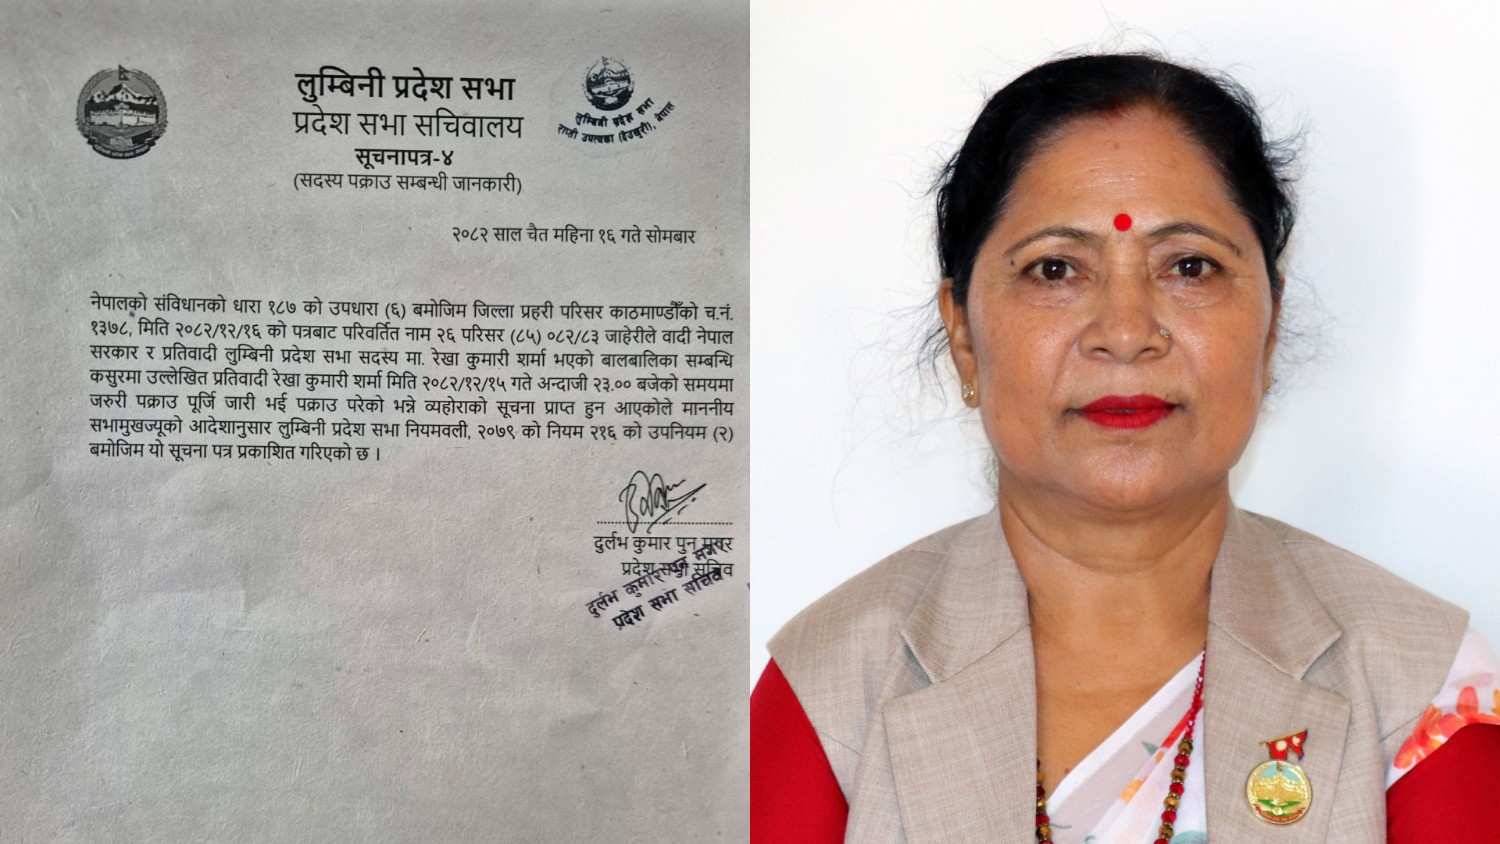 लुम्बिनी प्रदेश सभा
प्रदेश सभा सचिवालय
सूचनापत्र-४
(सदस्य पक्राउ सम्बन्धी जानकारी)
लुम्बिनी प्रदेश सभा
राप्ती उपत्यका (देउखुरी), नेपाल
२०८२ साल चैत महिना १६ गते सोमबार
नेपालको संविधानको धारा १८७ को उपधारा (६) बमोजिम जिल्ला प्रहरी परिसर काठमाण्डौँको च.नं.
१३७८, मिति २०८२/१२/१६ को पत्रबाट परिवर्तित नाम २६ परिसर (८५) ०८२/८३ जाहेरीले वादी नेपाल
सरकार र प्रतिवादी लुम्बिनी प्रदेश सभा सदस्य मा. रेखा कुमारी शर्मा भएको बालबालिका सम्बन्धि
कसुरमा उल्लेखित प्रतिवादी रेखा कुमारी शर्मा मिति २०८२/१२/१५ गते अन्दाजी २३.०० बजेको समयमा
जरुरी पक्राउ पूर्जि जारी भई पक्राउ परेको भन्ने व्यहोराको सूचना प्राप्त हुन आएकोले माननीय
सभामुखज्यूको आदेशानुसार लुम्बिनी प्रदेश सभा नियमवली, २०७९ को नियम २१६ को उपनियम (२)
बमोजिम यो सूचना पत्र प्रकाशित गरिएको छ ।
दुर्लभ कुमार पुन मगर
प्रदेश सभा सचिव
दुर्लभ कुमार पुन मगर
प्रदेश सभा सचिव